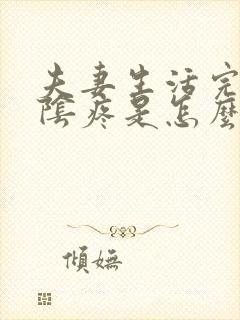 夫妻生活完
陰疼是怎麼
傾嫵